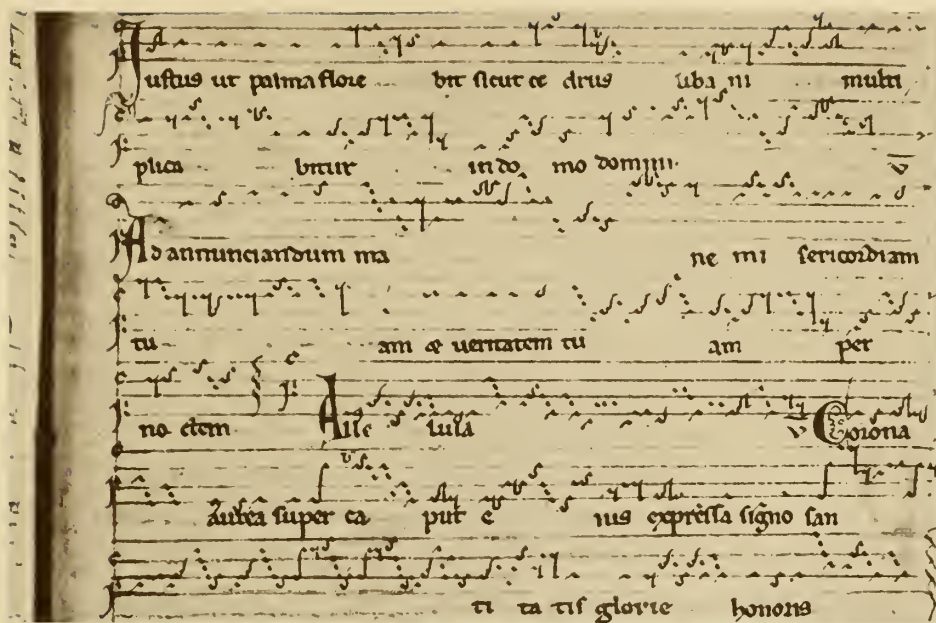 Iustus ut palma flore bit sicut ce drus liba ni multi
plica bitur in do mo domini. V
Ad annunciandum ma ne mi sericordiam
tu am & veritatem tu am per
no ctem. Alle luia V Corona
Aurea super ca put e ius expressa signo san
ti ta tis glorie honoris